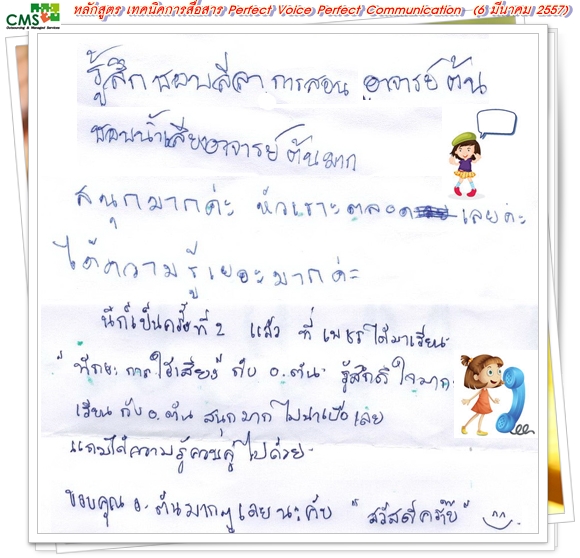 CMS
Outsourcing & Managed Services
หลักสูตร เทคนิคการสื่อสาร Perfect Voice Perfect Communication (6 มีนาคม 2557)
รู้สึก ชอบลีลา การสอน อาจารย์ ต้น
ชอบน้ำเสียงอาจารย์ ต้นมาก
สนุกมากค่ะ หัวเราะตลอด เลยค่ะ
ได้ความรู้เยอะมากค่ะ
นี่ก็เป็นครั้งที่ 2 แล้ว ที่ เพชรได้มาเรียน
"ทักษะ การใช้เสียง" กับ อ.ต้น รู้สึกดีใจมาก
เรียน กับ อ.ต้น สนุกมาก ไม่น่าเบื่อเลย
แถมได้ความรู้ควบคู่ไปด้วย
ขอบคุณ อ. ต้นมากๆ เลยนะคับ "สวัสดีครับ"